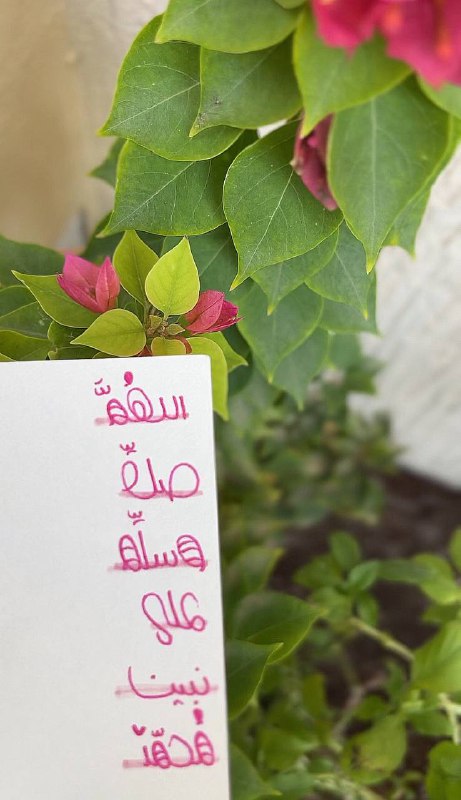 اللهُمَّ
صلِّ
وسلِّم
على
نبينا
مُحمَّد